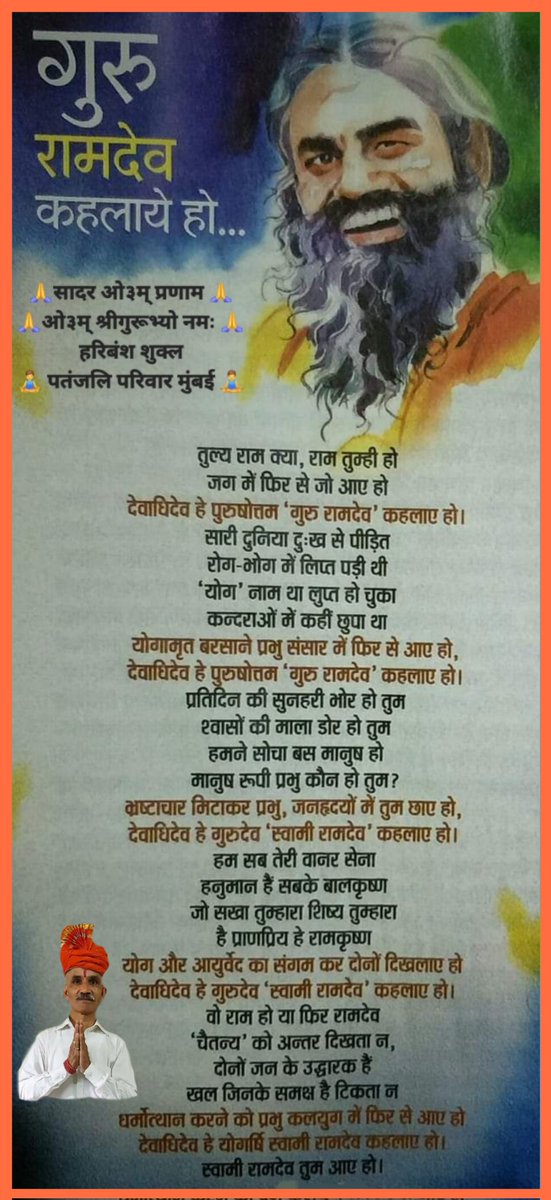 गुरु
रामदेव
कहलाये हो...
🙏सादर ओ३म् प्रणाम 🙏
🙏ओ३म् श्रीगुरूभ्यो नमः 🙏
हरिबंश शुक्ल
🧘 पतंजलि परिवार मुंबई 🧘
तुल्य राम क्या, राम तुम्ही हो
जग में फिर से जो आए हो
देवाधिदेव हे पुरुषोत्तम ‘गुरु रामदेव’ कहलाए हो।
सारी दुनिया दुःख से पीड़ित
रोग-भोग में लिप्त पड़ी थी
‘योग’ नाम था लुप्त हो चुका
कन्दराओं में कहीं छुपा था
योगामृत बरसाने प्रभु संसार में फिर से आए हो,
देवाधिदेव हे पुरुषोत्तम ‘गुरु रामदेव’ कहलाए हो।
प्रतिदिन की सुनहरी भोर हो तुम
श्वासों की माला डोर हो तुम
हमने सोचा बस मानुष हो
मानुष रूपी प्रभु कौन हो तुम?
भ्रष्टाचार मिटाकर प्रभु, जनहृदयों में तुम छाए हो,
देवाधिदेव हे गुरुदेव ‘स्वामी रामदेव’ कहलाए हो।
हम सब तेरी वानर सेना
हनुमान हैं सबके बालकृष्ण
जो सखा तुम्हारा शिष्य तुम्हारा
है प्राणप्रिय हे रामकृष्ण
योग और आयुर्वेद का संगम कर दोनों दिखलाए हो
देवाधिदेव हे गुरुदेव ‘स्वामी रामदेव’ कहलाए हो।
वो राम हो या फिर रामदेव
‘चैतन्य’ को अन्तर दिखता न,
दोनों जन के उद्धारक हैं
खल जिनके समक्ष है टिकता न
धर्मोत्थान करने को प्रभु कलयुग में फिर से आए हो
देवाधिदेव हे योगर्षि स्वामी रामदेव कहलाए हो।
स्वामी रामदेव तुम आए हो।